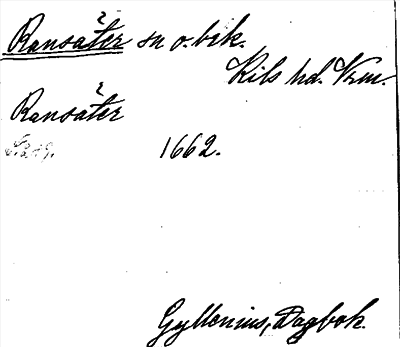 Ransäter sn o. bik.
Kils hd. Vrm.
Ransäter
1662.
Gyllenius, Dagbok.